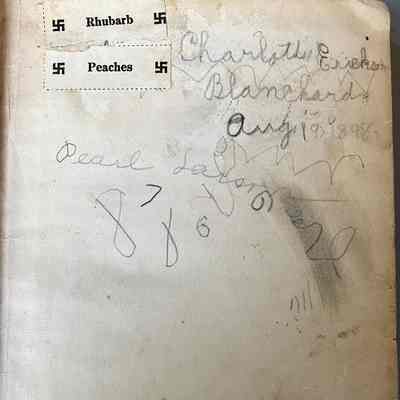 卐 Rhubarb 卐
卐 Peaches 卐
Charlotte Erickson
Blanchard
Aug 19 1898
Pearl Larson
8 7 8 6